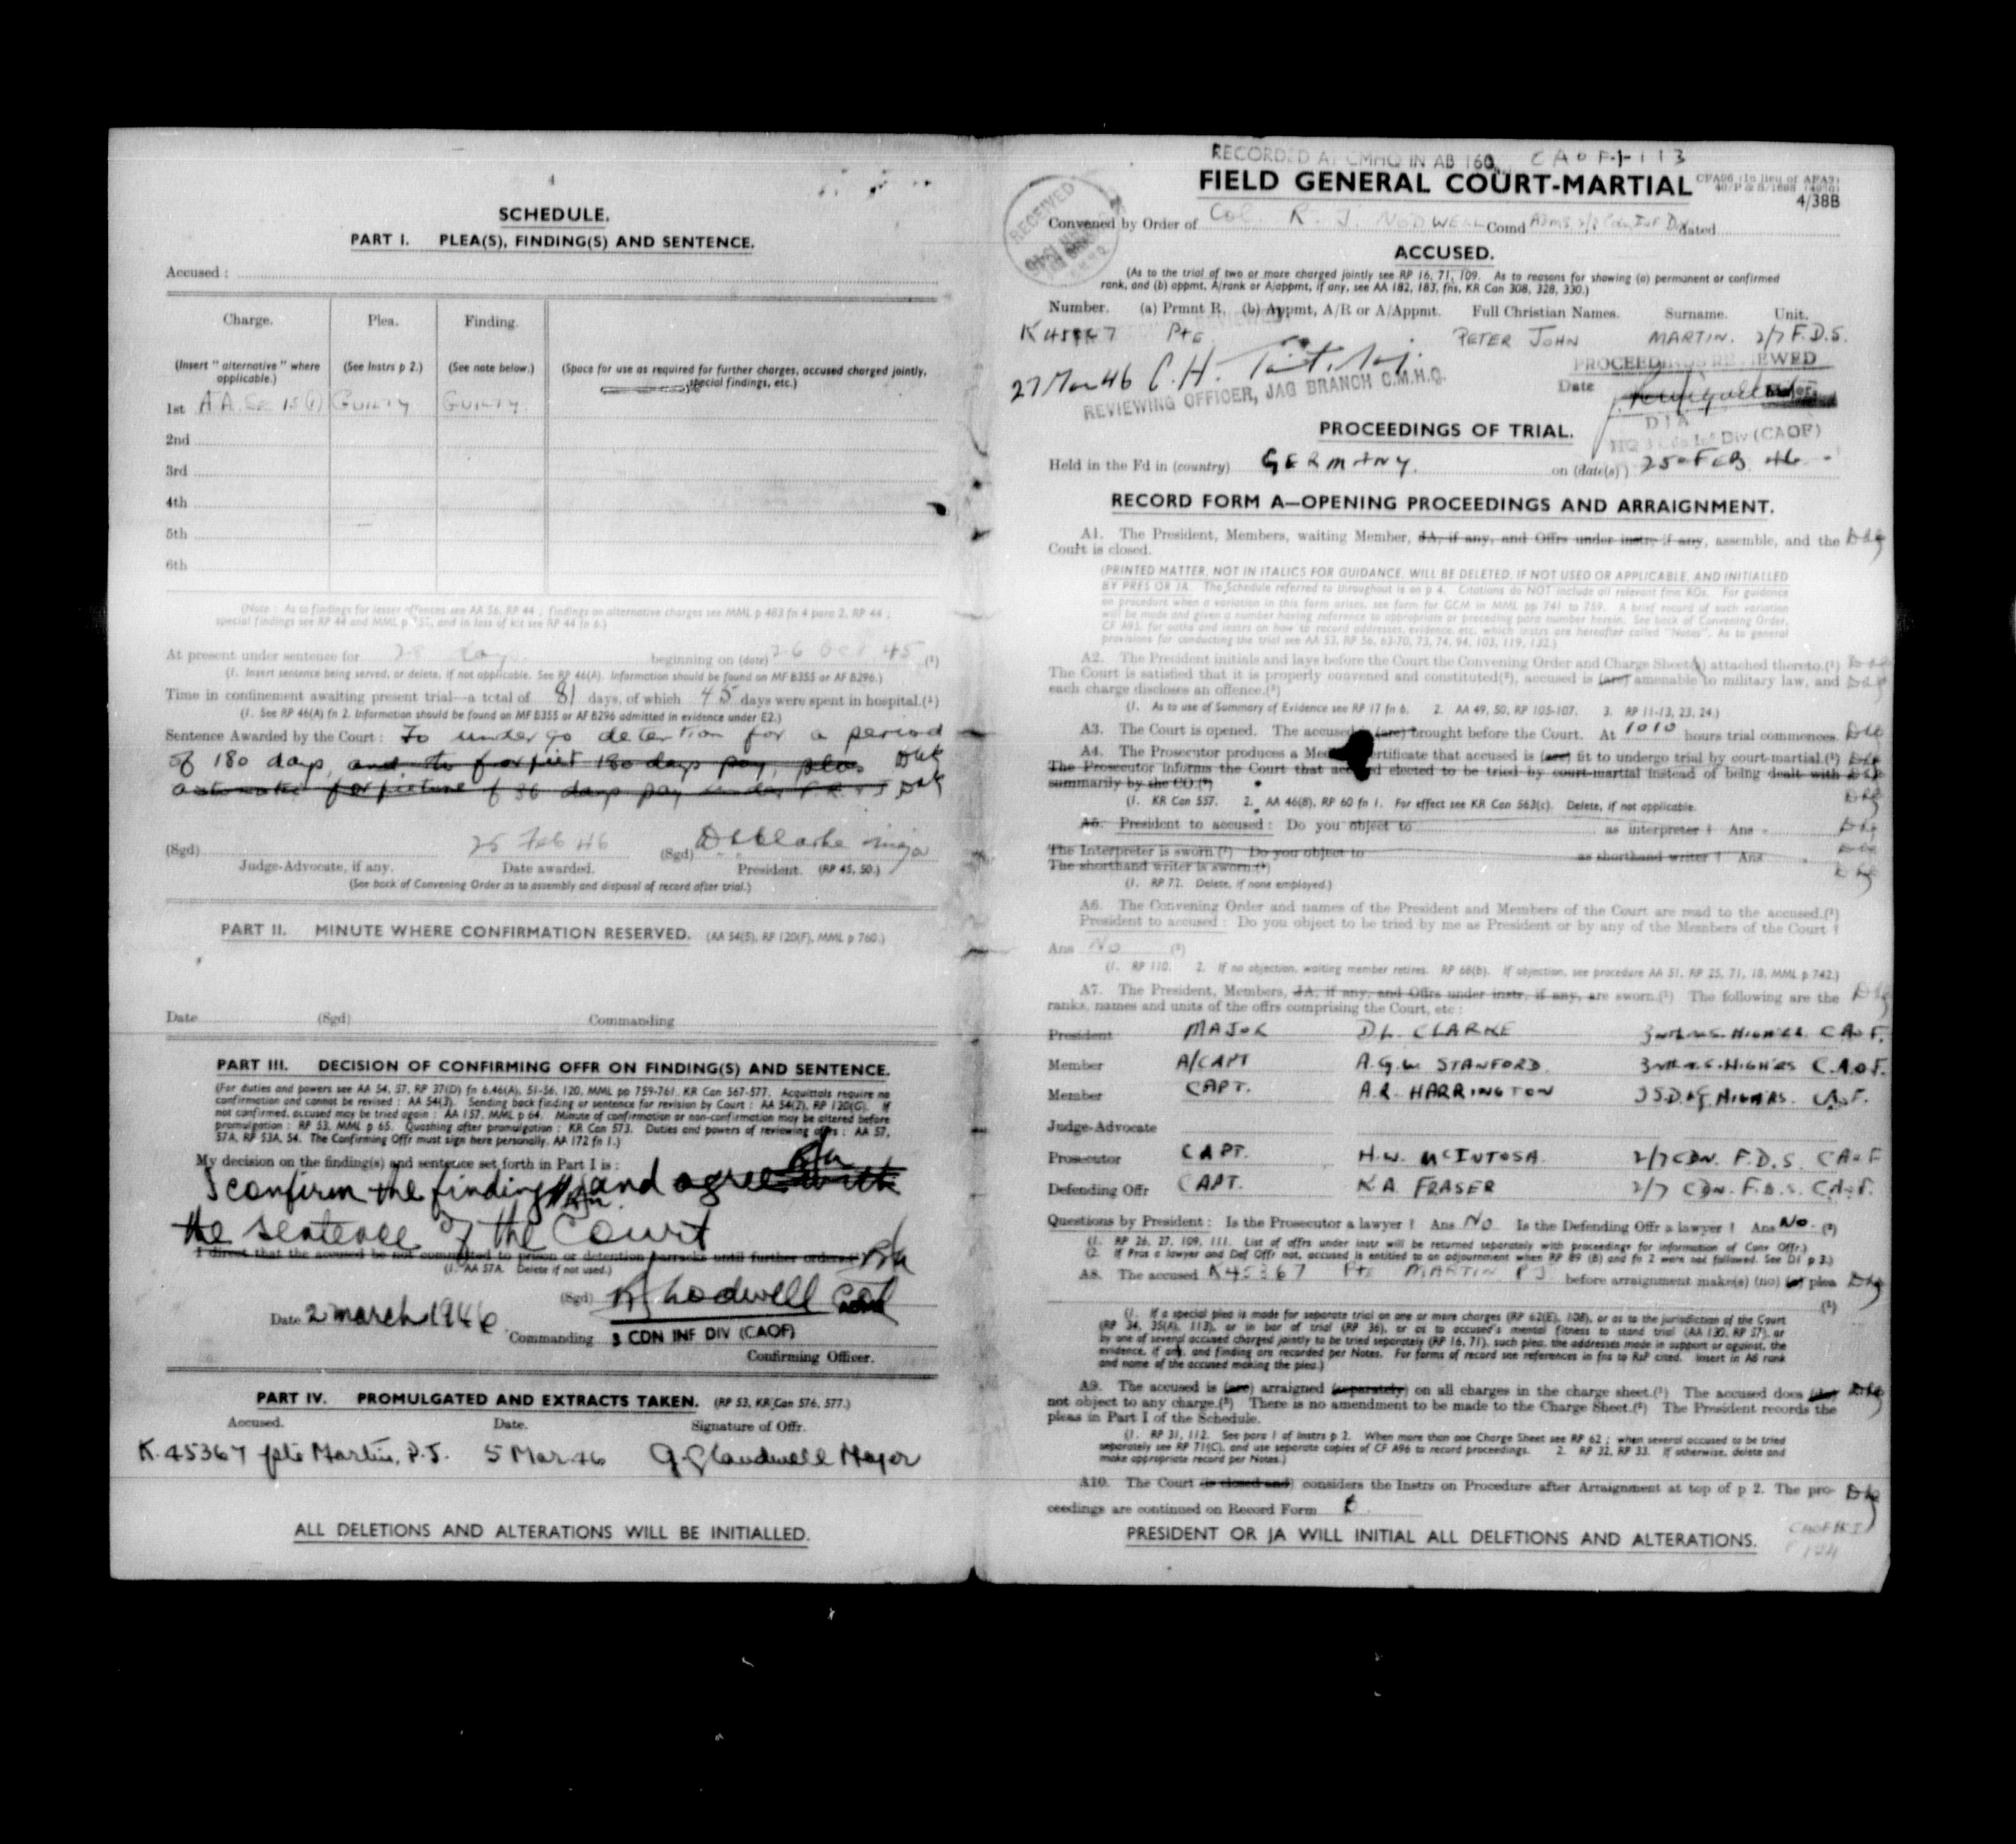 4
SCHEDULE.
PART I. PLEA(S), FINDING(S) AND SENTENCE.
Accused :
Charge. Plea. Finding.
(Insert " alternative " where applicable.) (See Instrs p 2.) (See note below.) (Space for use as required for further charges, accused charged jointly, special findings, etc.)
1st A.A. Sec 15(1) GUILTY GUILTY
2nd
3rd
4th
5th
6th
(Note : As to findings for lesser offences see AA 56, RP 44 ; findings on alternative charges see MML p 483 fn 4 para 2, RP 44 ;
special findings see RP 44 and MML p and in loss of kit see RP 44 fn 6.)
At present under sentence for 28 days beginning on (date) 26 Oct 45 (¹)
(1. Insert sentence being served, or delete, if not applicable. See RP 46(A). Information should be found on MF B355 or AF B296.)
Time in confinement awaiting present trial—a total of 81 days, of which 45 days were spent in hospital.(¹)
(1. See RP 46(A) fn 2. Information should be found on MF B355 or AF B296 admitted in evidence under E2.)
Sentence Awarded by the Court : To undergo detention for a period
of 180 days, and to forfeit 180 days pay, plus
automatic forfeiture of 36 days pay under
(Sgd) 25 Feb 46 (Sgd) D L Clarke major
Judge-Advocate, if any. Date awarded. President. (RP 45, 50.)
(See back of Convening Order as to assembly and disposal of record after trial.)
PART II. MINUTE WHERE CONFIRMATION RESERVED. (AA 54(5), RP 120(F), MML p 760.)
Date (Sgd) Commanding
PART III. DECISION OF CONFIRMING OFFR ON FINDING(S) AND SENTENCE.
(For duties and powers see AA 54, 57, RP 37(D) fn 6,46(A), 51-56, 120, MML pp 759-761, KR Can 567-577. Acquittals require no
confirmation and cannot be revised : AA 54(3). Sending back finding or sentence for revision by Court : AA 54(2), RP 120(G). If
not confirmed, accused may be tried again : AA 157, MML p 64. Minute of confirmation or non-confirmation may be altered before
promulgation : RP 53, MML p 65. Quashing after promulgation : KR Can 573. Duties and powers of reviewing offrs : AA 57,
57A, RP 53A, 54. The Confirming Offr must sign here personally. AA 172 fn 1.)
My decision on the finding(s) and sentence set forth in Part I is :
I confirm the finding and agree with
the sentence of the Court
I direct that the accused be not committed to prison or detention barracks until further orders.(¹)
(1. AA 57A. Delete if not used.)
(Sgd) Col
Date 2 march 1946 Commanding 3 CDN INF DIV (CAOF)
Confirming Officer.
PART IV. PROMULGATED AND EXTRACTS TAKEN. (RP 53, KR Can 576, 577.)
Accused. Date. Signature of Offr.
K.45367 pte Martin, P.J. 5 Mar 46 Major
ALL DELETIONS AND ALTERATIONS WILL BE INITIALLED.
RECORDED AT CMHQ IN AB 160 CAOF-1-113
FIELD GENERAL COURT-MARTIAL
CFA96 (In lieu of AFA3)
4/38B
RECEIVED
Convened by Order of Col. R. J. NODWELL Comd dated
ACCUSED.
(As to the trial of two or more charged jointly see RP 16, 71, 109. As to reasons for showing (a) permanent or confirmed
rank, and (b) appmt, A/rank or A/appmt, if any, see AA 182, 183, fns, KR Can 308, 328, 330.)
Number. (a) Prmnt R. (b) Appmt, A/R or A/Appmt. Full Christian Names. Surname. Unit.
K45367 Pte PETER JOHN MARTIN. 2/7 F.D.S.
PROCEEDINGS REVIEWED
27 Mar 46 C.H.
Date
REVIEWING OFFICER, JAG BRANCH C.M.H.Q.
DJA
HQ 3 Cdn Inf Div (CAOF)
PROCEEDINGS OF TRIAL.
Held in the Fd in (country) GERMANY. on (date(s)) 25 FEB 46
RECORD FORM A—OPENING PROCEEDINGS AND ARRAIGNMENT.
A1. The President, Members, waiting Member, JA, if any, and Offrs under instr, if any, assemble, and the
Court is closed.
(PRINTED MATTER, NOT IN ITALICS FOR GUIDANCE, WILL BE DELETED, IF NOT USED OR APPLICABLE, AND INITIALLED
BY PRES OR JA. The Schedule referred to throughout is on p 4. Citations do NOT include all relevant fmn ROs. For guidance
on procedure when a variation in this form arises, see form for GCM in MML pp 741 to 759. A brief record of such variation
will be made and given a number having reference to appropriate or preceding para number herein. See back of Convening Order,
CF A95, for oaths and instrs on how to record addresses, evidence, etc, which instrs are hereafter called "Notes". As to general
provisions for conducting the trial see AA 53, RP 56, 63-70, 73, 74, 94, 103, 119, 132.)
A2. The President initials and lays before the Court the Convening Order and Charge Sheet(s) attached thereto.(¹)
The Court is satisfied that it is properly convened and constituted(²), accused is (are) amenable to military law, and
each charge discloses an offence.(³)
(1. As to use of Summary of Evidence see RP 17 fn 6. 2. AA 49, 50, RP 105-107. 3. RP 11-13, 23, 24.)
A3. The Court is opened. The accused is (are) brought before the Court. At 1010 hours trial commences.
A4. The Prosecutor produces a Certificate that accused is (are) fit to undergo trial by court-martial.(¹)
The Prosecutor informs the Court that accused elected to be tried by court-martial instead of being dealt with
summarily by the CO.(²)
(1. KR Can 557. 2. AA 46(8), RP 60 fn 1. For effect see KR Can 563(c). Delete, if not applicable.
A5. President to accused : Do you object to as interpreter ? Ans
The Interpreter is sworn.(¹) Do you object to as shorthand writer ? Ans
The shorthand writer is sworn.(¹)
(1. RP 72. Delete, if none employed.)
A6. The Convening Order and names of the President and Members of the Court are read to the accused.(¹)
President to accused : Do you object to be tried by me as President or by any of the Members of the Court ?
Ans No (²)
(1. RP 110. 2. If no objection, waiting member retires. RP 68(b). If objection, see procedure AA 51, RP 25, 71, 18, MML p 742.)
A7. The President, Members, JA, if any, and Offrs under instr, if any, are sworn.(¹) The following are the
ranks, names and units of the offrs comprising the Court, etc :
President MAJOR D.L. CLARKE C.A.O.F.
Member A/CAPT A.G.W. STANFORD. C.A.O.F.
Member CAPT. A.R. HARRINGTON C.A.O.F.
Judge-Advocate
Prosecutor CAPT. H.W. McINTOSH. 2/7 CDN. F.D.S. CAOF
Defending Offr CAPT. K.A. FRASER 2/7 CDN. F.D.S. CAOF.
Questions by President : Is the Prosecutor a lawyer ? Ans No Is the Defending Offr a lawyer ? Ans No. (²)
(1. RP 26, 27, 109, 111. List of offrs under instr will be returned separately with proceedings for information of Conv Offr.)
(2. If Pros a lawyer and Def Offr not, accused is entitled to an adjournment when RP 89 (B) and fn 2 were not followed. See D1 p 3.)
A8. The accused K45367 Pte MARTIN PJ before arraignment make(s) (no) (a) plea
(¹)
(1. If a special plea is made for separate trial on one or more charges (RP 62(E), 108), or as to the jurisdiction of the Court
(RP 34, 35(A), 113), or in bar of trial (RP 36), or as to accused's mental fitness to stand trial (AA 130, RP 57), or
by one of several accused charged jointly to be tried separately (RP 16, 71), such plea, the addresses made in support or against, the
evidence, if any, and finding are recorded per Notes. For forms of record see references in fns to RsP cited. Insert in A8 rank
and name of the accused making the plea.)
A9. The accused is (are) arraigned (separately) on all charges in the charge sheet.(¹) The accused does (do)
not object to any charge.(²) There is no amendment to be made to the Charge Sheet.(²) The President records the
pleas in Part I of the Schedule.
(1. RP 31, 112. See para 1 of Instrs p 2. When more than one Charge Sheet see RP 62 ; when several accused to be tried
separately see RP 71(C), and use separate copies of CF A96 to record proceedings. 2. RP 32, RP 33. If otherwise, delete and
make appropriate record per Notes.)
A10. The Court (is closed and) considers the Instrs on Procedure after Arraignment at top of p 2. The pro-
ceedings are continued on Record Form
PRESIDENT OR JA WILL INITIAL ALL DELETIONS AND ALTERATIONS.